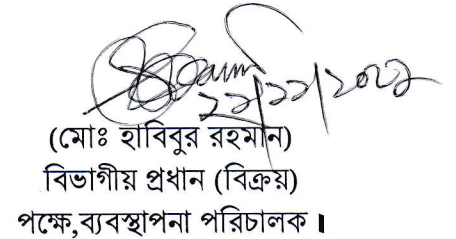 (মোঃ হাবিবুর রহমান)
বিভাগীয় প্রধান (বিক্রয়)
পক্ষে,ব্যবস্থাপনা পরিচালক।